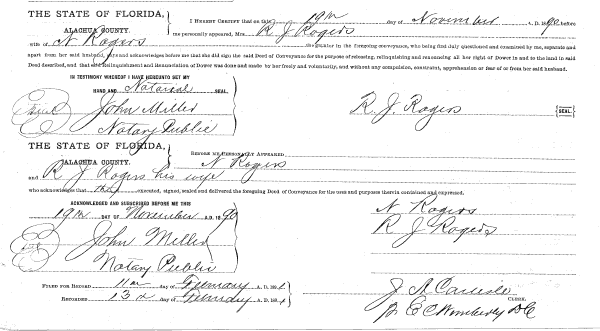 THE STATE OF FLORIDA,
ALACHUA COUNTY.
I HEREBY CERTIFY that on this 19th day of November A. D. 1890 before
me personally appeared, Mrs. R J Rogers
wife of N Rogers the grantor in the foregoing conveyance, who being first duly questioned and examined by me, separate and
apart from her said husband, and acknowledges before me that she did sign the said Deed of Conveyance for the purpose of releasing, relinquishing and renouncing all her right of Dower in and to the land in said
Deed described, and that said Relinquishment and Renunciation of Dower was done and made to be freely and voluntarily, and without any compulsion, constraint, apprehension or fear of or from her said husband.
IN TESTIMONY WHEREOF I HAVE HEREUNTO SET MY
HAND AND Notarial SEAL
John Miller
Notary Public
R. J. Rogers
{SEAL.}
THE STATE OF FLORIDA,
ALACHUA COUNTY.
BEFORE ME PERSONALLY APPEARED N Rogers
and R J Rogers his wife
who acknowledge that they executed, signed, sealed and delivered the foregoing Deed of Conveyance for the uses and purposes therein contained and expressed.
ACKNOWLEDGED AND SUBSCRIBED BEFORE ME THIS
19th DAY OF November A. D. 1890
John Miller
Notary Public
N Rogers
R J Rogers
FILED FOR RECORD 11th day of January A. D. 1891
RECORDED 13th day of January A. D. 1891
J A Carlisle
CLERK.
E C Wimberly DC